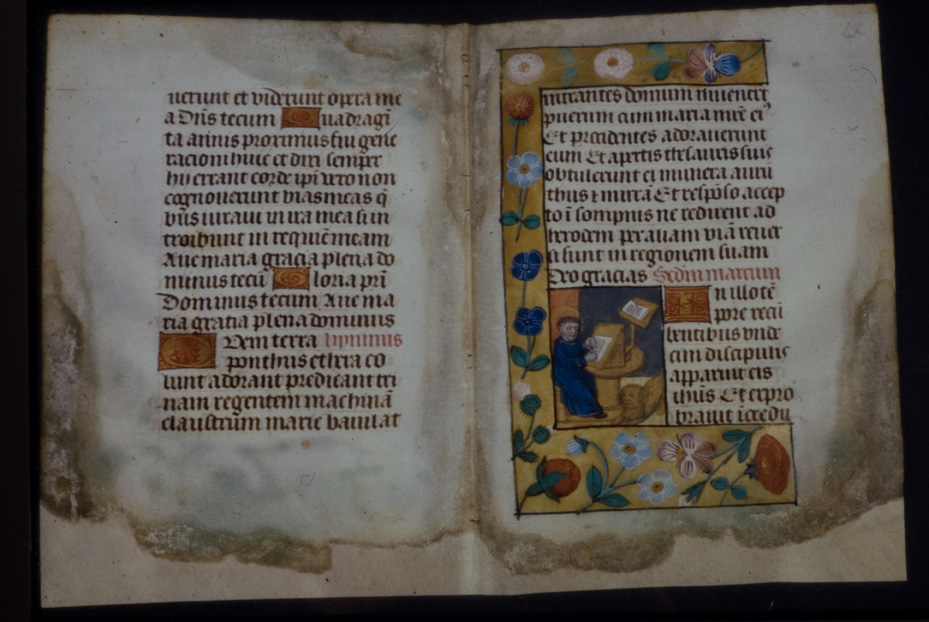 uerunt et viderunt opera me
a Dns tecum Quadragi
ta annis proximus fui gene
rationi huic et dixi semper
hii errant corde ipi vero non
cognouerunt vias meas q
bus iuraui in ira mea si in
troibunt in requie meam
Aue maria gracia plena do
minus tecu Gloria pri
Dominus tecum Aue ma
ria gratia plena dominus
Quem terra hymnus
ponthus ethera co
lunt adorant predicant tri
nam regentem machina
claustrum marie baiulat
intrantes domum inuenert
puerum cum maria mre ei
Et procidentes adorauerunt
eum Et apertis thesauris suis
obtulerunt ei munera auru
thus et mirra Et resposo accep
to i sompnis ne redirent ad
herodem per aliam via reuer
si sunt in regionem suam
Deo gracias Sedm marcum
In illo te
pore recu
bentibus unde
cim discipulis
apparuit eis
ihus Et expro
brauit icredu